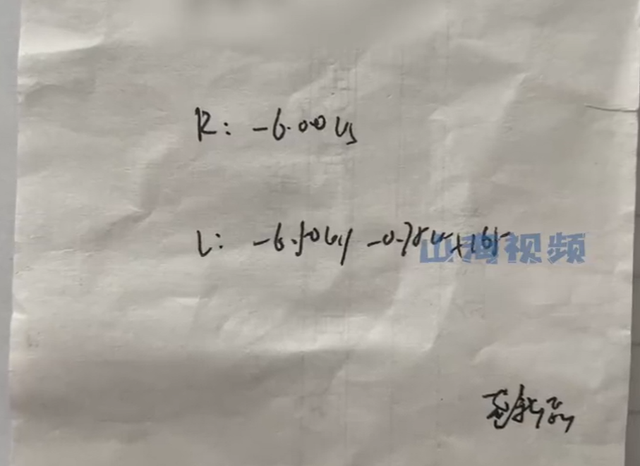 R: -6.00 DS
L: -6.50 DS / -0.75 DC × 165
山海视频